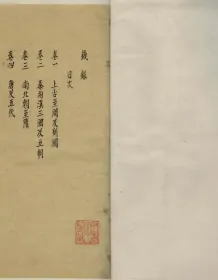 鐵錄
目次
卷一 上古至周及列國
卷二 秦兩漢三國及五朝
卷三 南北朝至隋
卷四 唐及五代